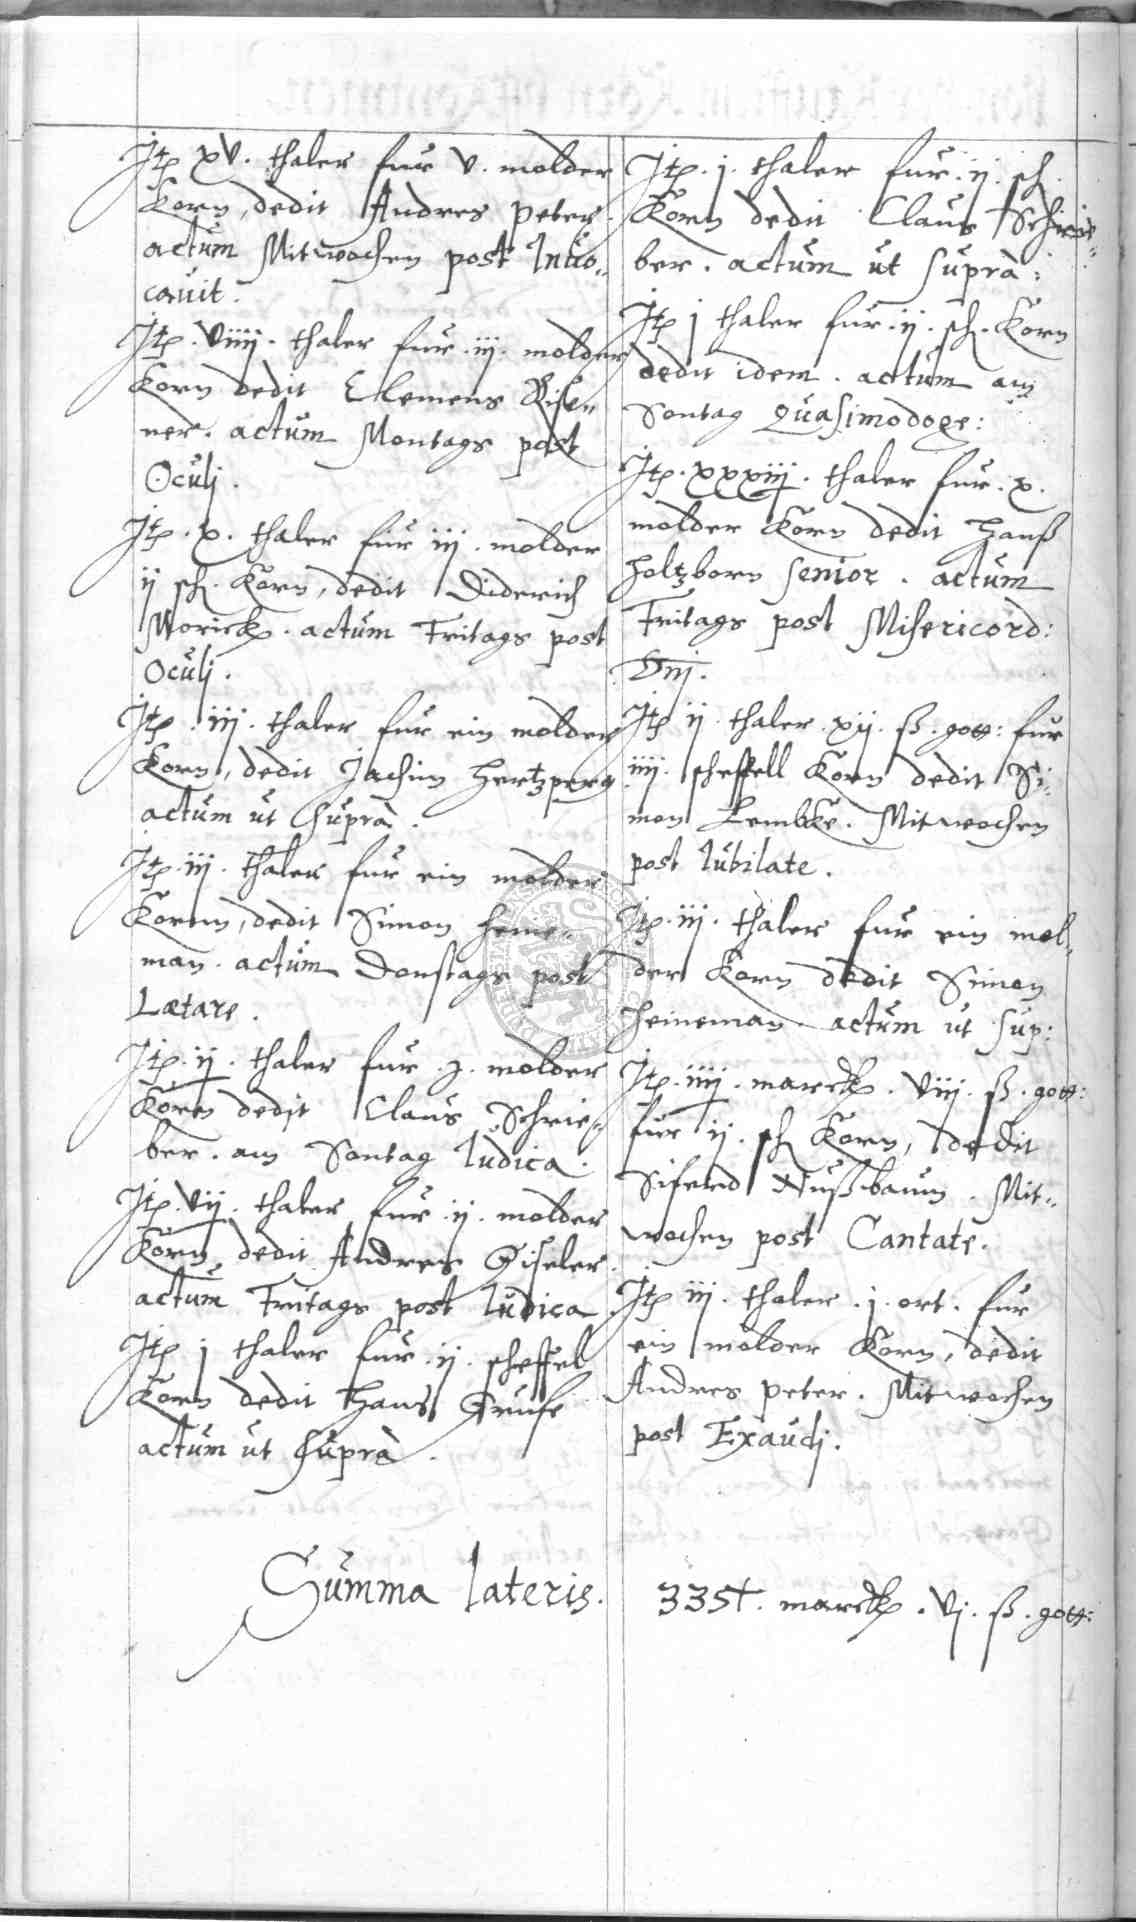 Jtp xv. thaler fur v. molder
Korn, dedit Andres peter.
actum Mitwochen post Inuo„
cauit.
Jtp. viiij. thaler fur. iij. molder
Korn dedit Clemens Rise„
ner. actum Montags post
Oculj.
Jtp. x. thaler fur iij. molder
ij sch. Korn, dedit Diderich
Morick. actum Fritags post
Oculj.
Jtp. iij. thaler fur ein molder
Korn, dedit Jachim Hertzperg
actum ut supra.
Jtp. iij. thaler fur ein molder
Kornn, dedit Simon Heine„
man. actum Donstags post
Lætare.
Jtp. ij. thaler fur. j. molder
Korn dedit Claus Schrie„
ber. am Sontag Iudica.
Jtp. vij. thaler fur. ij. molder
Korn dedit Andres Giseler.
actum Fritags post Iudica
Jtp j thaler fur. ij. scheffel
Korn dedit Hans Gruse
actum ut supra.
Jtp. j. thaler fur. ij. sch.
Korn dedit Claus Schrie„
ber. actum ut supra:
Jtp j thaler fur. ij. sch. Korn
dedit idem. actum am
Sontag Quasimodoge:
Jtp. xxxiij. thaler fur. x.
molder Korn dedit Hanß
Holtzborn senior. actum
Fritags post Misericord:
Dnj.
Jtp ij. thaler. xij. ß. gott: fur
iiij. scheffell Korn dedit Si„
mon Lembke. Mitwochen
post Iubilate.
Jtp. iij. thaler fur ein mol„
der Korn dedit Simon
Heineman. actum ut sup:
Jtp. iiij. marck. viij. ß. gott:
fur ij. sch Korn, dedit
Siferd Nußbaum. Mit„
wochen post Cantate.
Jtp iij. thaler. j. ort. fur
ein molder Korn, dedit
Andres peter. Mitwochen
post Exaudj.
Summa lateris. 335†. marck. vj. ß. gott: